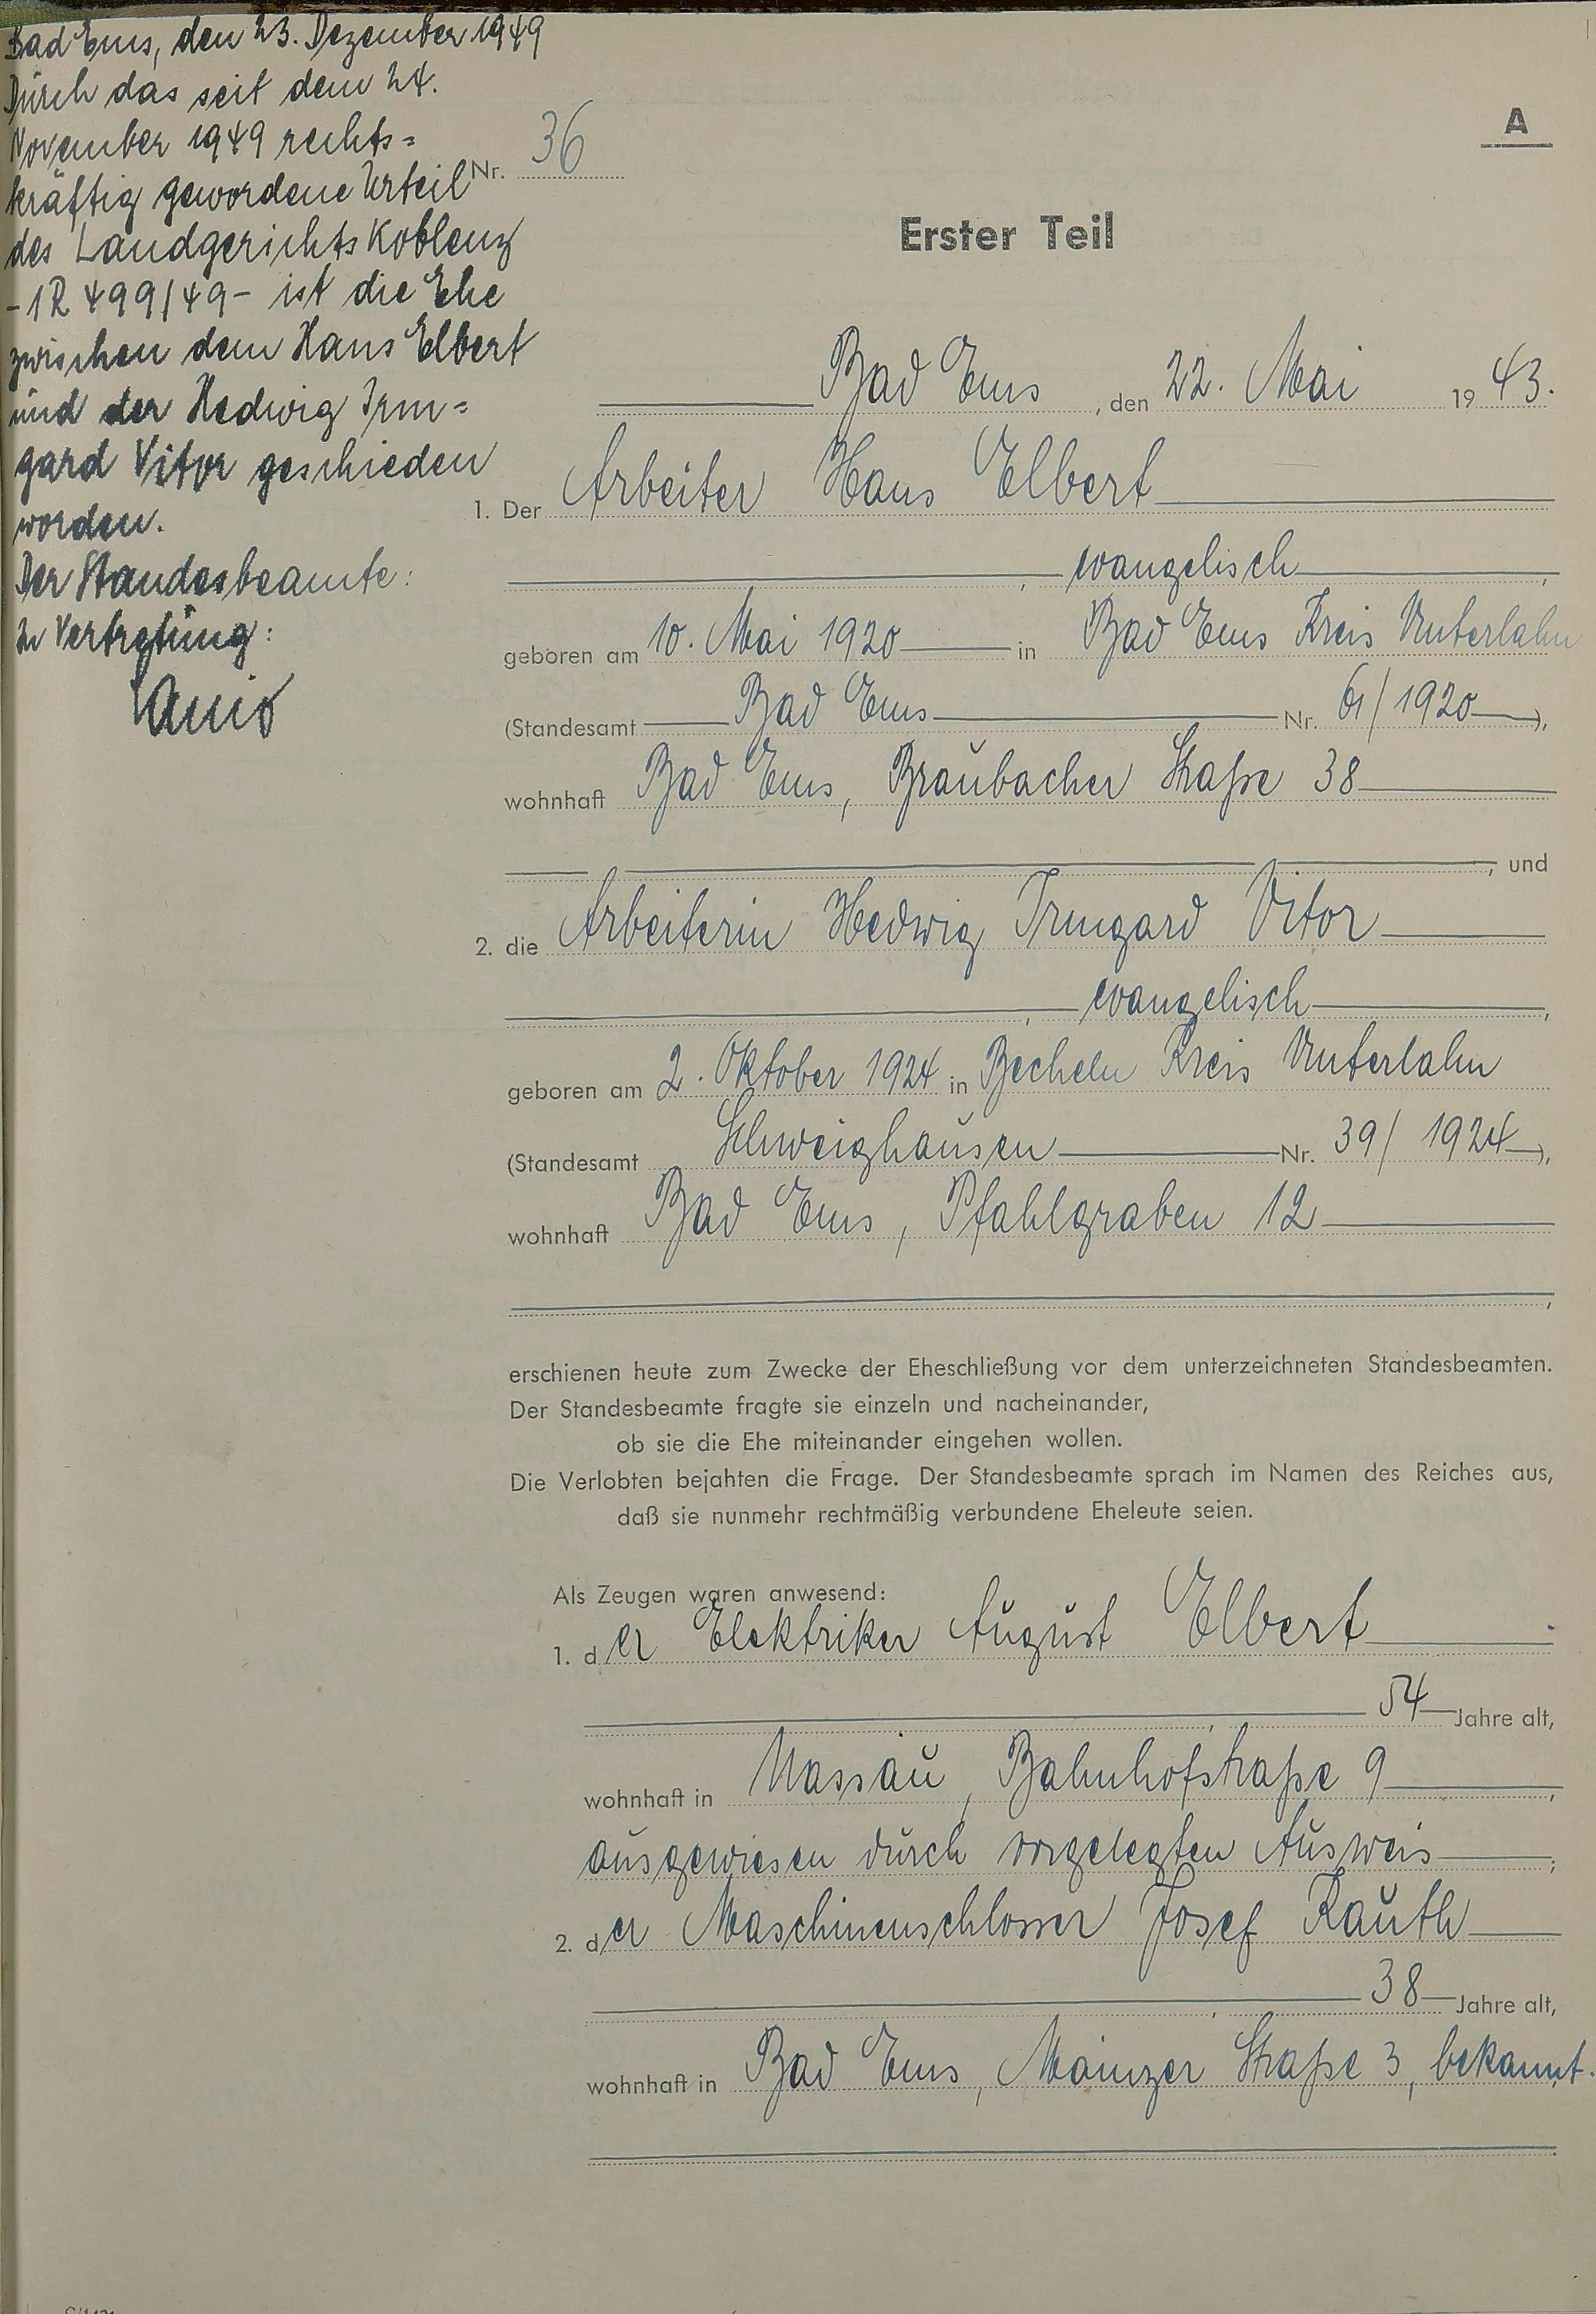 Bad Ems, den 23. Dezember 1949
Durch das seit dem 24.
November 1949 rechts=
kräftig gewordene Urteil
des Landgerichts Koblenz
- 1R 499/49 - ist die Ehe
zwischen dem Hans Elbert
und der Hedwig Irm=
gard Vitor geschieden
worden.
Der Standesbeamte:
In Vertretung:
A
Nr. 36
Erster Teil
Bad Ems, den 22. Mai 1943.
1. Der Arbeiter Hans Elbert
, evangelisch,
geboren am 10. Mai 1920 in Bad Ems Kreis Unterlahn
(Standesamt Bad Ems Nr. 61/1920),
wohnhaft Bad Ems, Braubacher Straße 38
, und
2. die Arbeiterin Hedwig Irmgard Vitor
, evangelisch,
geboren am 2. Oktober 1924 in Becheln Kreis Unterlahn
(Standesamt Schweighausen Nr. 39/1924),
wohnhaft Bad Ems, Pfahlgraben 12
,
erschienen heute zum Zwecke der Eheschließung vor dem unterzeichneten Standesbeamten.
Der Standesbeamte fragte sie einzeln und nacheinander,
ob sie die Ehe miteinander eingehen wollen.
Die Verlobten bejahten die Frage. Der Standesbeamte sprach im Namen des Reiches aus,
daß sie nunmehr rechtmäßig verbundene Eheleute seien.
Als Zeugen waren anwesend:
1. der Elektriker August Elbert
, 54 Jahre alt,
wohnhaft in Nassau, Bahnhofstraße 9,
ausgewiesen durch vorgelegten Ausweis;
2. der Maschinenschlosser Josef Kauth
, 38 Jahre alt,
wohnhaft in Bad Ems, Mainzer Straße 3, bekannt.